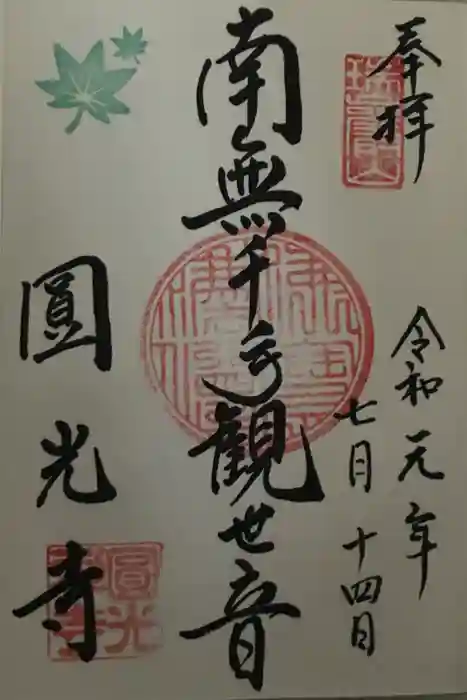 奉拝
令和元年
七月十四日
南無千手観世音
圓光寺
圓光寺